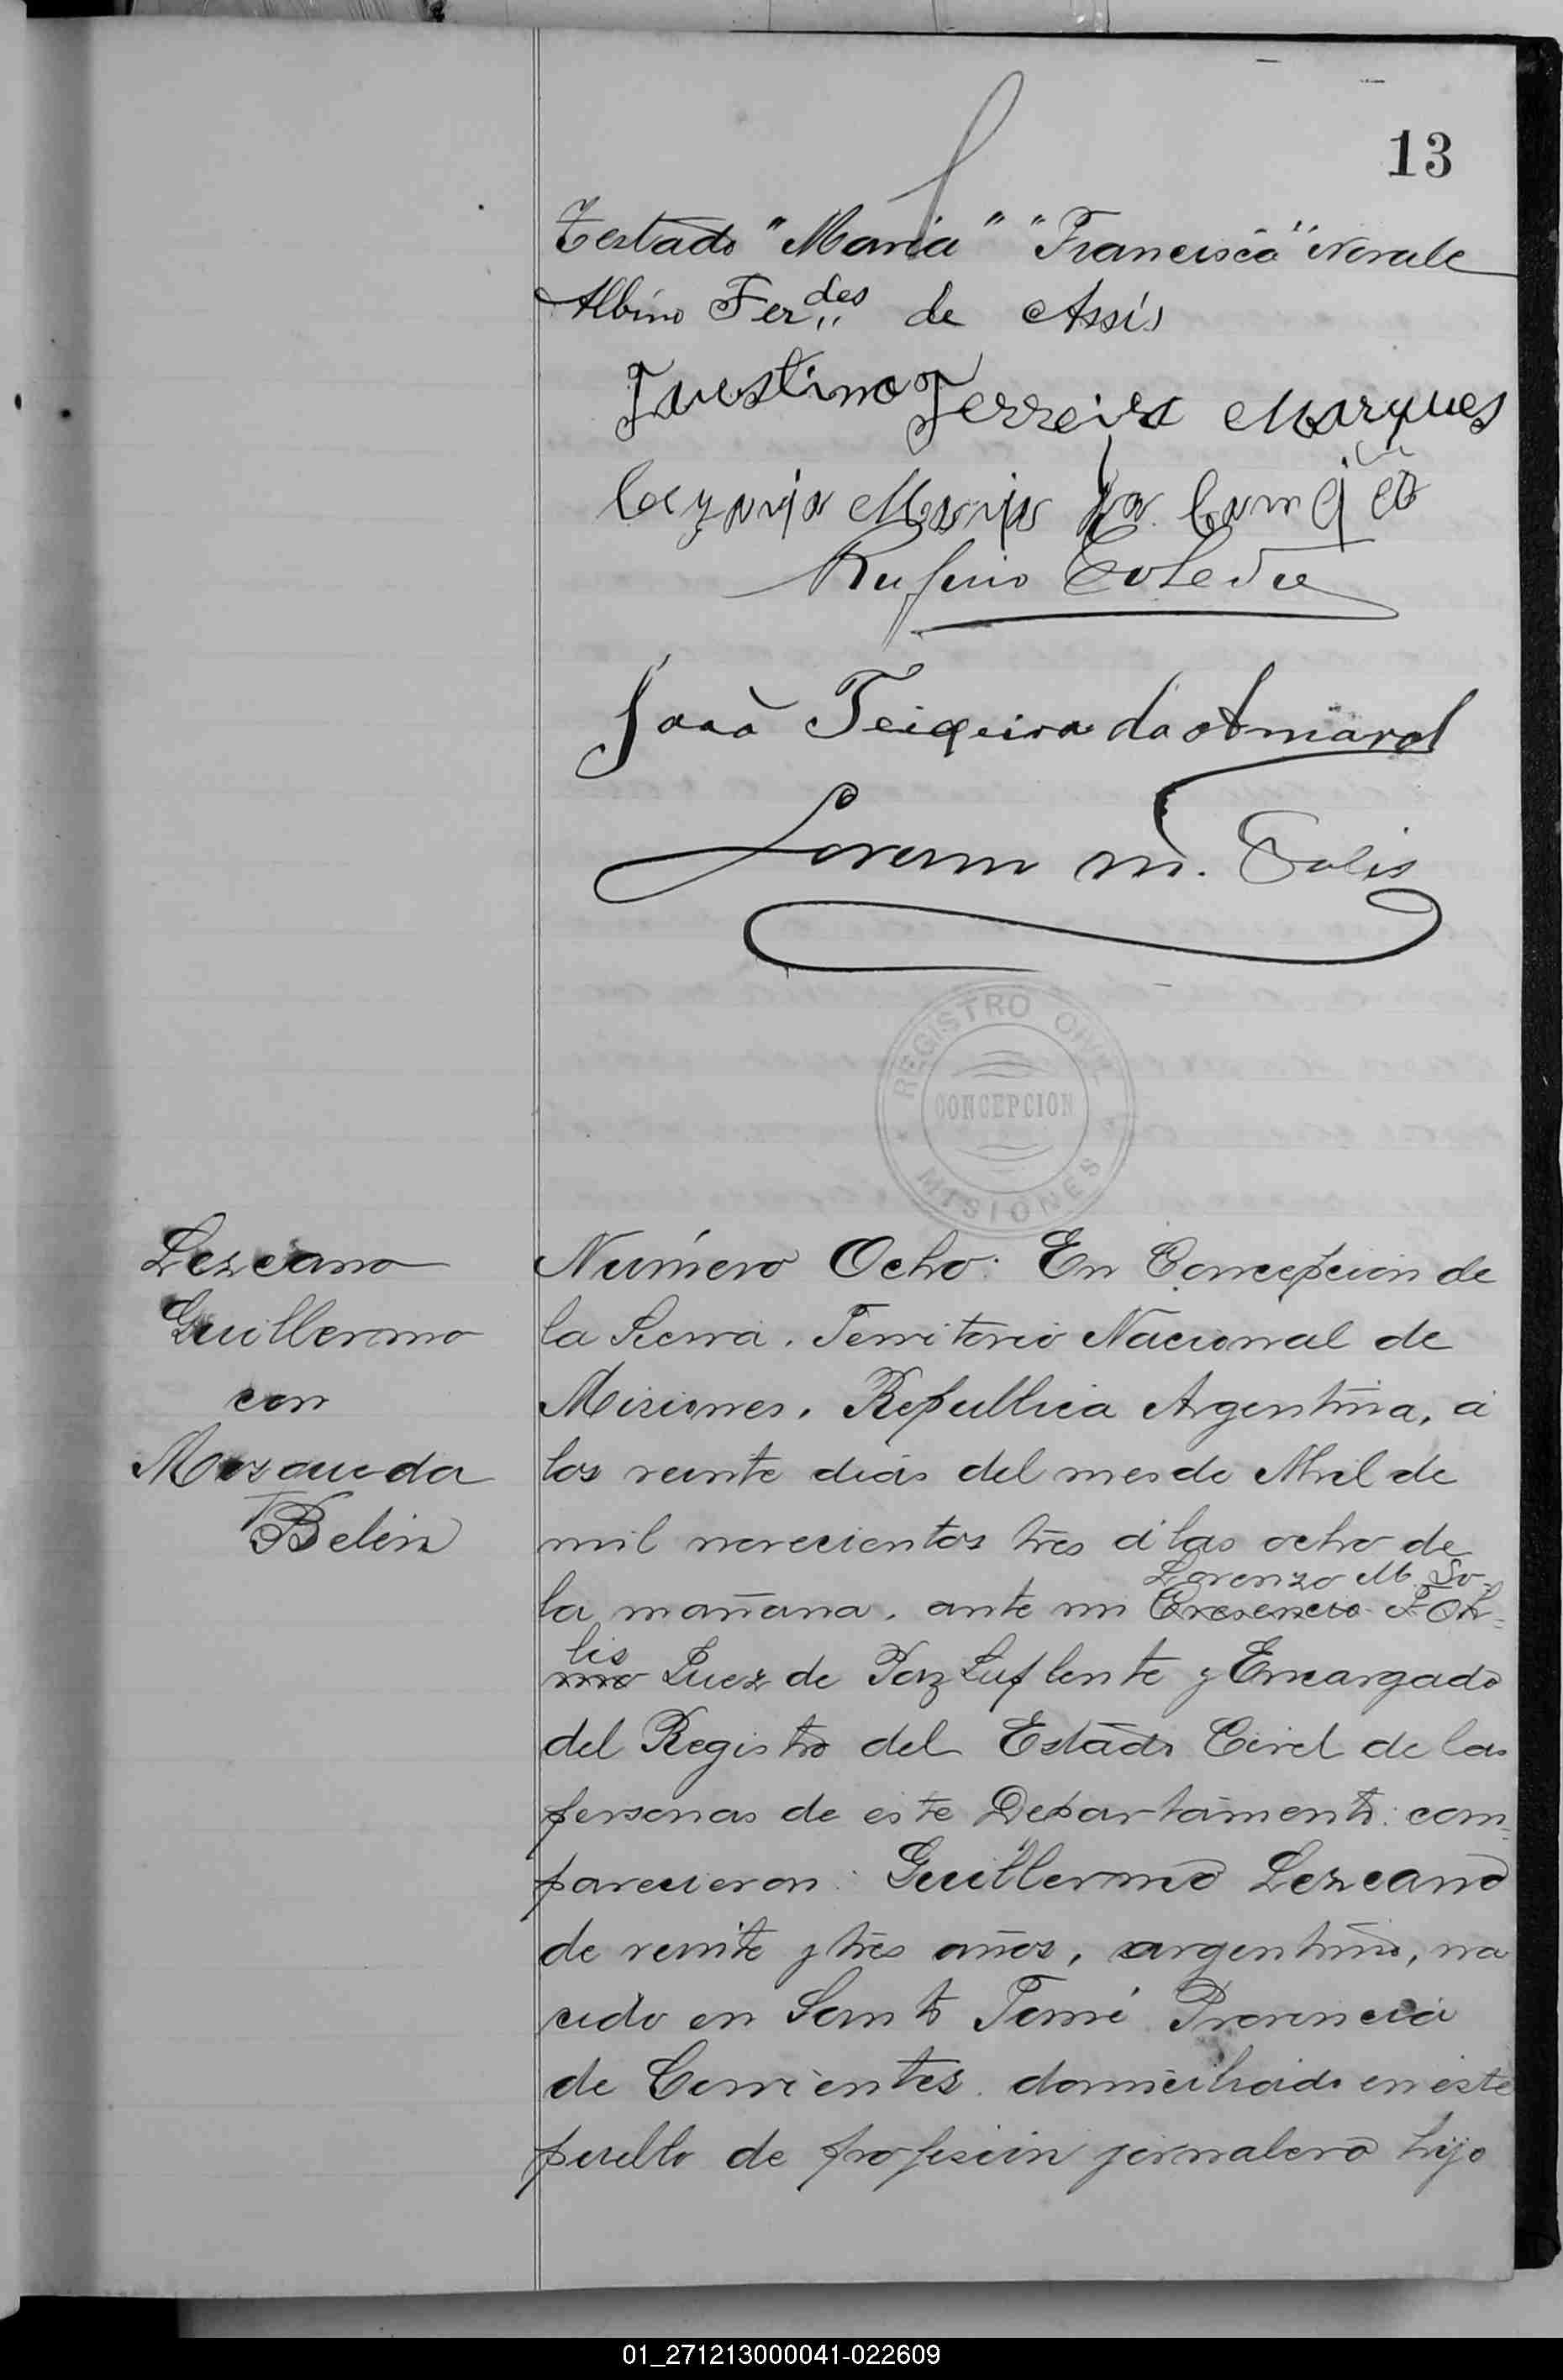 13
Testado "Maria" "Francisca" No vale
Albino Fer.des de Assis
Faustino Ferreira Marques
Maria
Rufino Toledo
João Teiqeira do Amaral
Lorenzo M. Solis
REGISTRO CIVIL
CONCEPCION
MISIONES
Lezcano
Guillermo
con
Mosqueda
Belén
Número Ocho. En Concepcion de
la Sierra. Territorio Nacional de
Misiones. Republica Argentina, á
los veinte dias del mes de Abril de
mil novecientos tres á las ocho de
Lorenzo M. So-
la mañana. ante mi Cresencio
lis
Juez de Paz Suplente y Encargado
del Registro del Estado Civil de las
personas de este Departamento: com=
parecieron: Guillermo Lezcano
de veinte y tres años, argentino, na
cido en Santo Tomé Provincia
de Corrientes. domiciliado en este
pueblo de profesión jornalero hijo
01_271213000041-022609